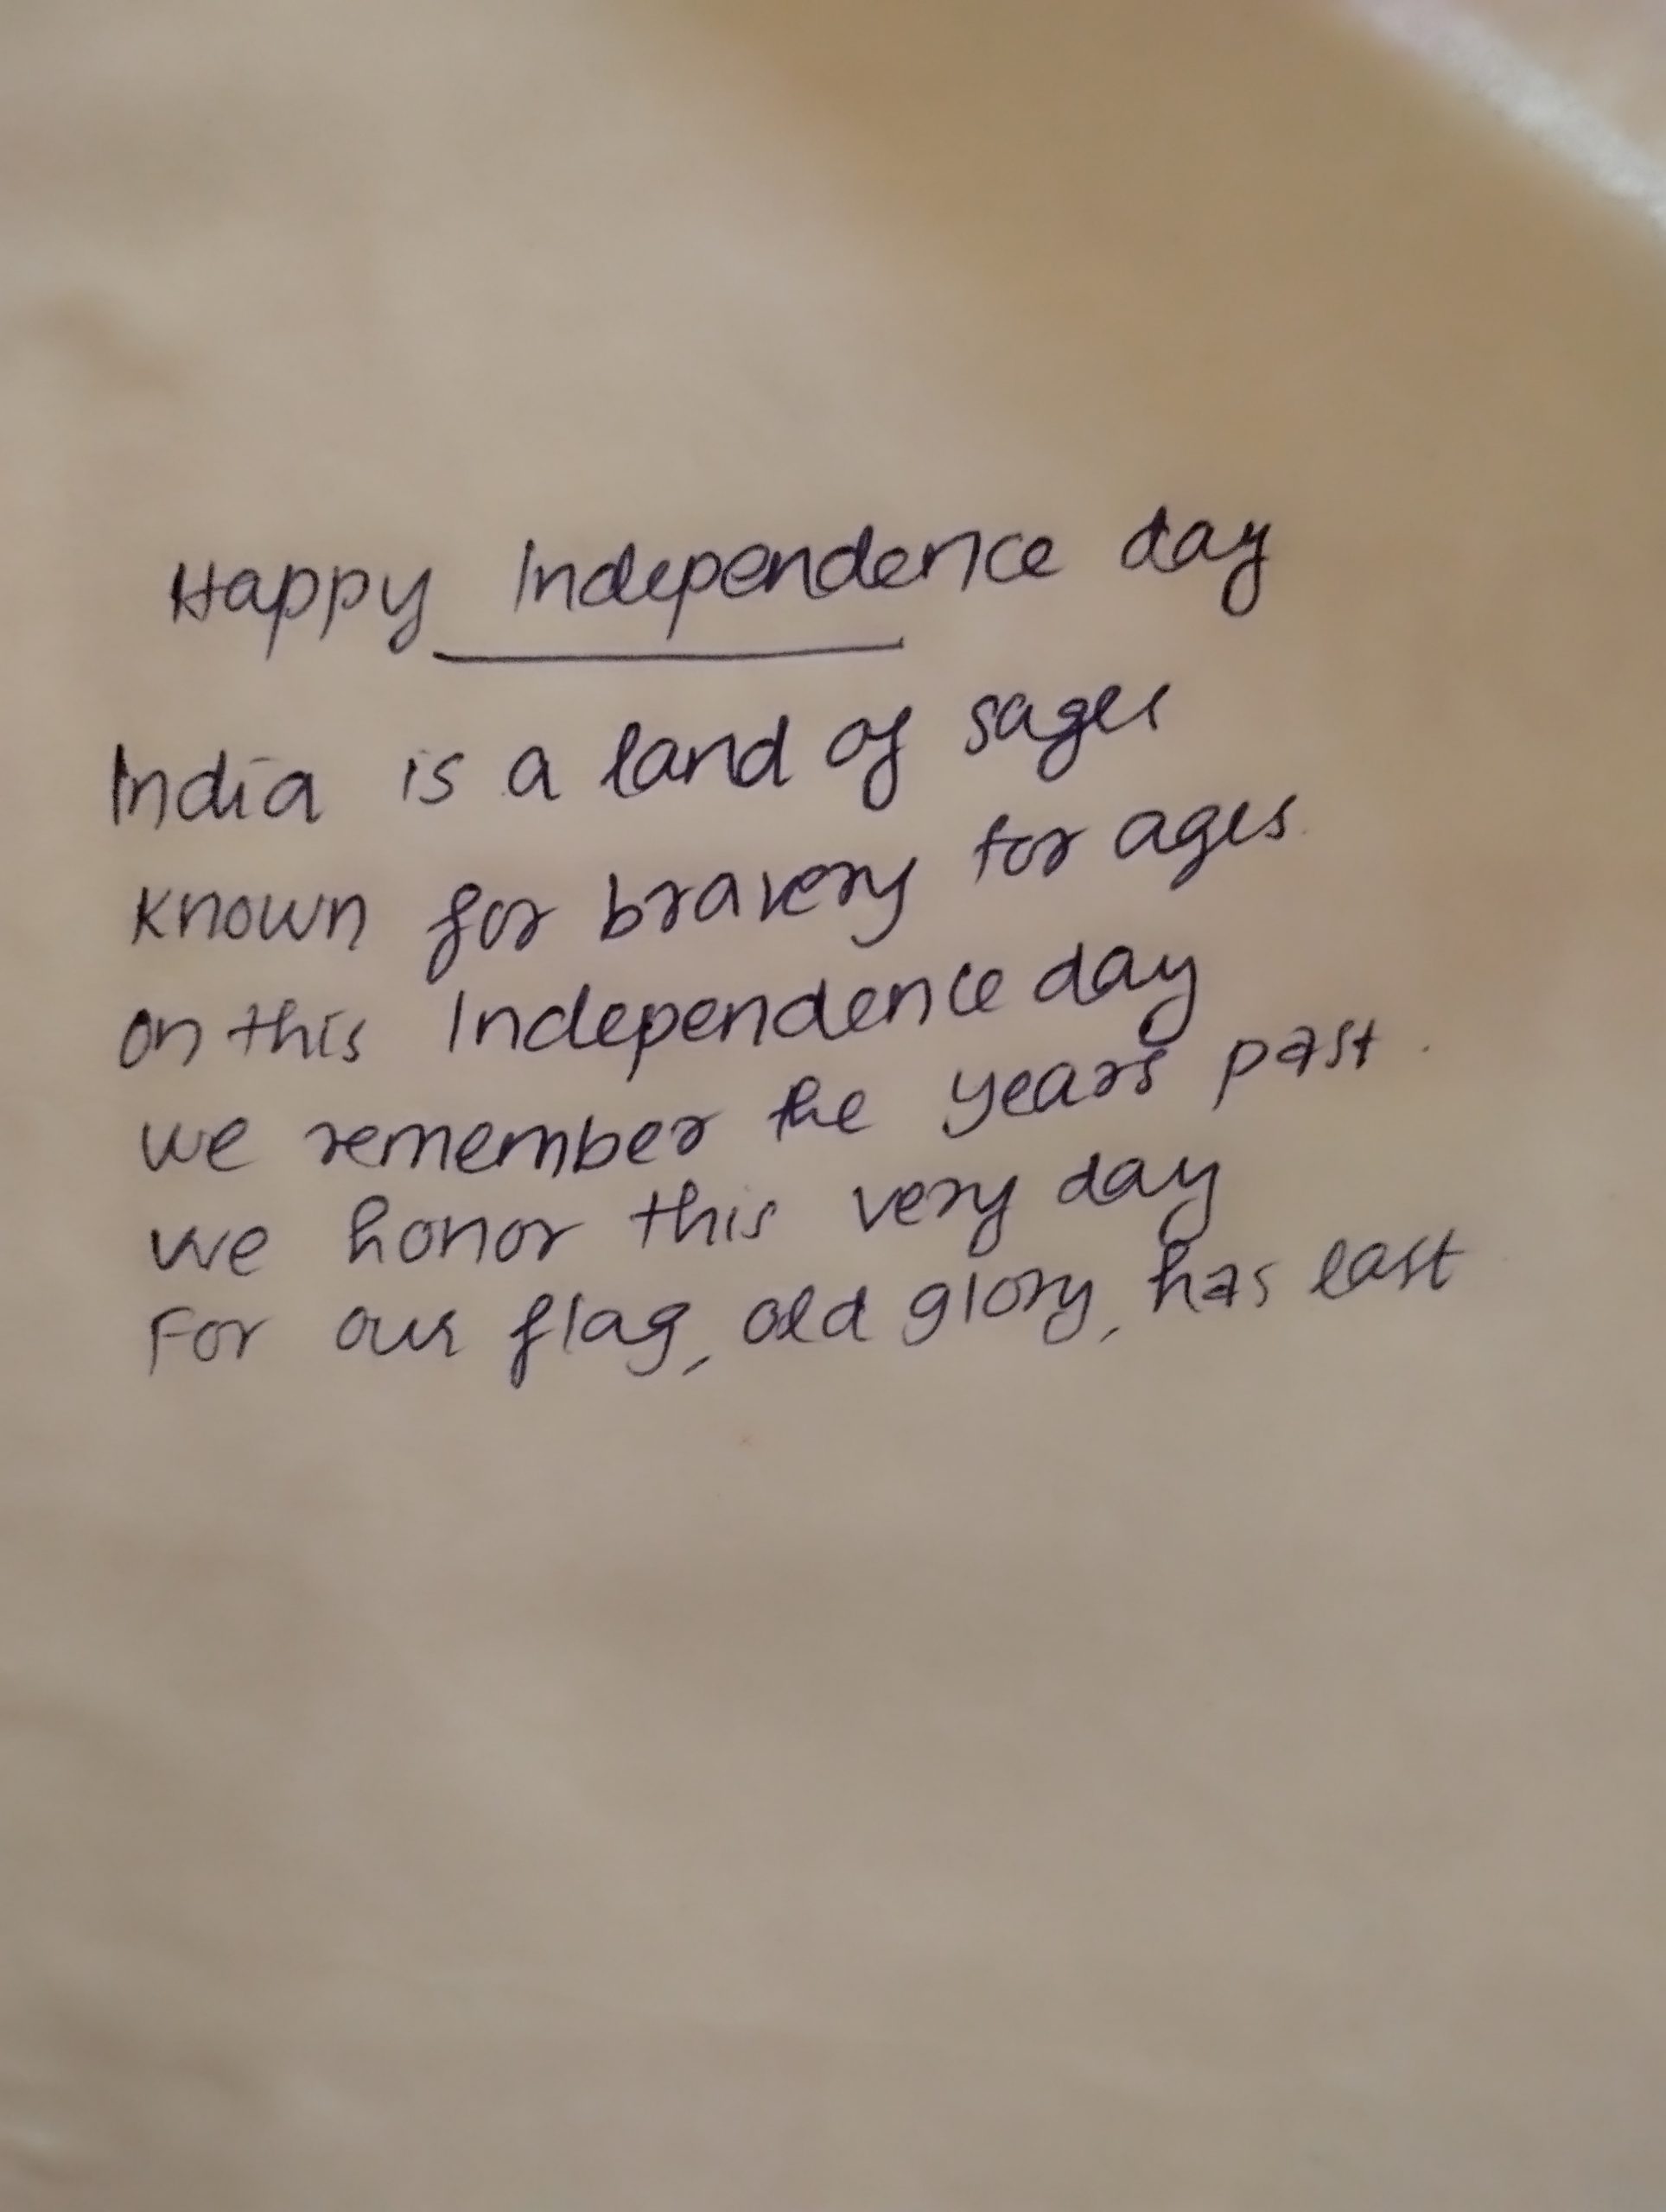 Happy Independence day
India is a land of sages
known for bravery for ages.
on this Independence day
we remember the years past.
we honor this very day
For our flag, old glory, has last